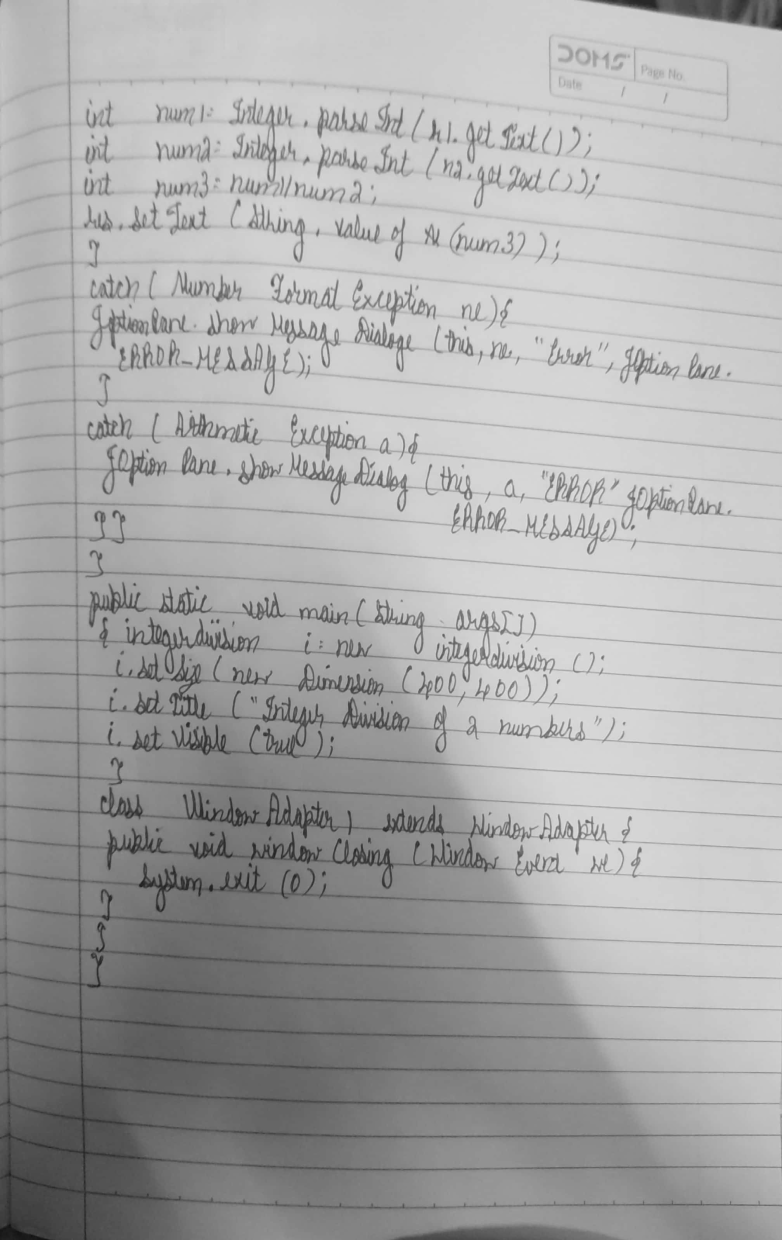 DOMS Page No.
Date / /
int num1= Integer. parse Int (n1. get Text());
int num2= Integer. parse Int (n2. get Text());
int num3= num1/num2;
res. set Text (String. value of (num3));
}
catch ( Number Format Exception ne){
JoptionPane. Show Message Dialoge (this, ne, "Error", JOption Pane.
ERROR_MESSAGE);
}
catch ( Arithmetic Exception a){
JOption Pane. show Message Dialog (this , a, "ERROR" JOptionPane.
ERROR_MESSAGE) ;
}}
}
public static void main( String args[])
{ integerdivision i= new integerdivision ();
i. set Size ( new Dimension (400, 400));
i. set Title ("Integer Division of 2 numbers");
i. set Visible (true );
}
class Window Adapter1 extends WindowAdapter {
public void window Closing (Window Event we) {
System. exit (0);
}
}
}